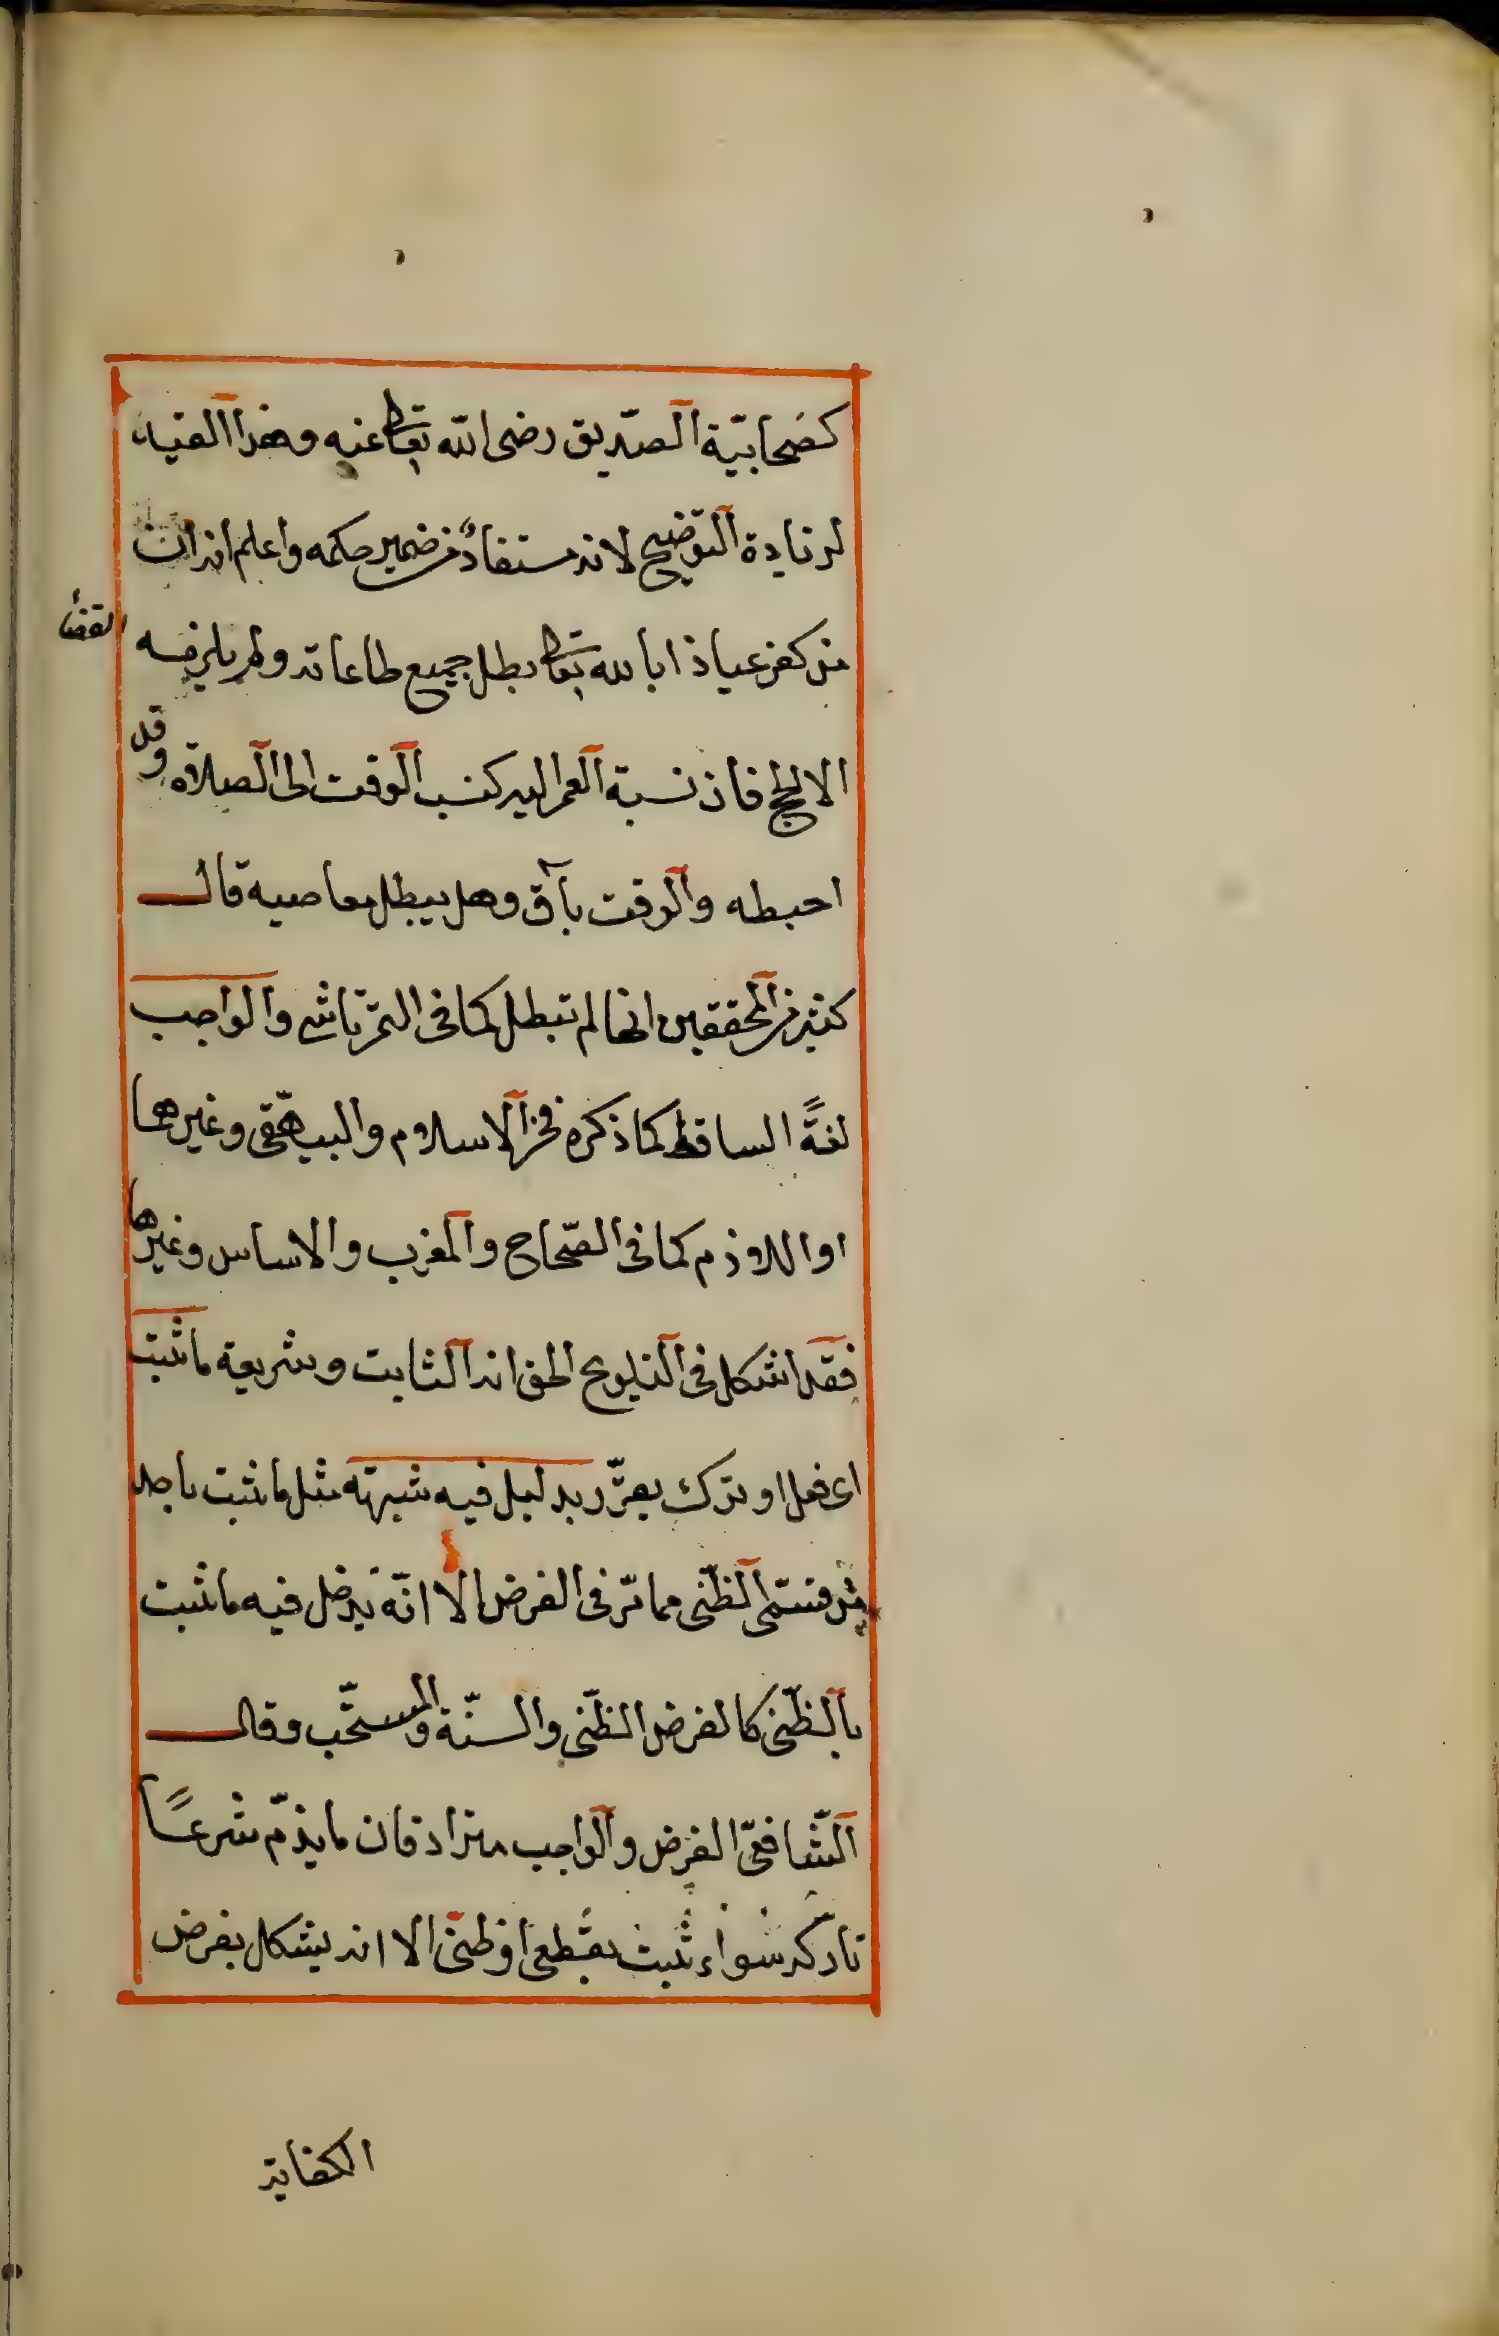 كصحابيّة الصّديق رضى الله تعالى عنه وهذا القيد
لزيادة التوضيح لانه مستفاد من ضمير حكمه واعلم انه ان
من كفر عياذا بالله تعالى بطل جميع طاعاته ولم يلزمه
القضأ
الا الحج فان نسبة العمر اليه كنسبة الوقت الى الصلاة وقد
احبطه والوقت باق وهل يبطل معاصيه قال
كثير من المحققين انها لم تبطل كما فى التمرتاشى والواجب
لغةً الساقط كما ذكره فخر الاسلام والبيهقى وغيرها
او اللازم كما فى الصّحاح والمغرب والاساس وغيرها
فقد اشكل فى التلويح الحق انه الثابت وشريعة ما ثبت
اى فعل او ترك يعزّر بدليل فيه شبهته مثل ما ثبت باحد
الظّنى مما مرّ فى الفرض الا انّه يدخل فيه ما ثبت
بالظّنى كالفرض الظّنى والسنّة والمستحّب وقال
الشّافعىّ الفرض والواجب مترادفان ما يذمّ شرعًا
تاركه سواء ثبت بقطعى او ظنّى الا انه يشكل بفرض
الكفاية